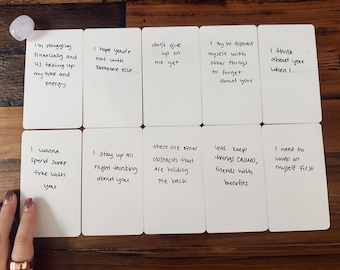 I'm struggling
financially and
it's taking up
my time and
energy
I hope you're
not with
someone else...
don't give
up on
me yet
I try to distract
myself with
other things
to forget
about you
I think
about you
when I...
I wanna
spend some
time with
you
I stay up all
night thinking
about you
there are other
obstacles that
are holding
me back
lets keep
things casual,
friends with
benefits
I need to
work on
myself first